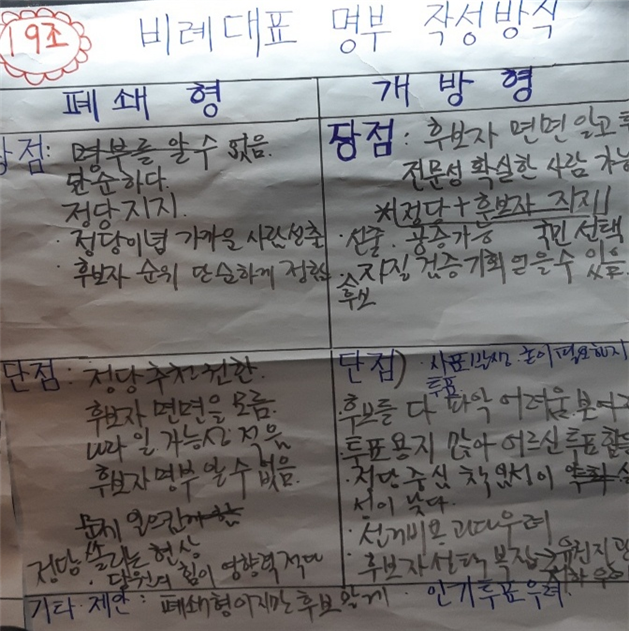 19조
비례대표 명부 작성방식
폐쇄형
개방형
장점: 명부를 알 수 없음.
단순하다.
정당지지.
· 정당이념 가까운 사람선출
· 후보자 순위 단순하게 정함
장점: 후보자 면면 알고 투
전문성 확실한 사람 가능
*(정당+후보자 지지)
· 선출. 검증가능 국민 선택
· 자질 검증기회 얻을 수 있음.
후보
단점: 정당추천 전환.
후보자 면면을 모름.
가능성 적음
후보자 명부 알 수 없음.
문제
정당 쏠리는 현상
· 당원의 힘이 영향력 적다
단점) · 사표발생·논이 필요하지
투표
후보를 다 파악 어려움
투표용지 많아 어르신 투표 힘듦
· 정당 중심 책임성이 약화
선이 낮다.
· 선거비용 과다우려
· 후보자 선택 복잡→유권자
인기투표우려.
기타·제안: 폐쇄형이지만 후보 알게